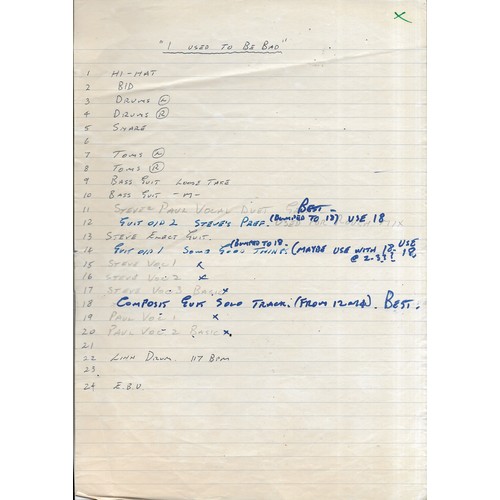 "I USED TO BE BAD"
1 HI-HAT
2 B/D
3 DRUMS (L)
4 DRUMS (R)
5 SNARE
6
7 TOMS (L)
8 TOMS (R)
9 BASS GUIT LONG TAGE
10 BASS GUIT -M-
BEST -
11 STEVE & PAUL VOCAL
12 GUIT O/D 2 STEVE'S PREF. (BUMPED TO 18) USE 18
13 STEVE GUIT.
14 GUIT O/D 1 SOME GOOD THING. (BUMPED TO 18. (MAYBE USE WITH 12. USE 18.
@ 2.37?
15 STEVE VOC 1 x
16 STEVE VOC 2 x
17 STEVE VOC 3 BASIC x
18 COMPOSIT GUIT SOLO TRACK. (FROM 12 & 14). BEST.
19 PAUL VOC 1 x
20 PAUL VOC 2 BASIC x
21
22 LINN DRUM. 117 BPM
23
24 E.B.U.